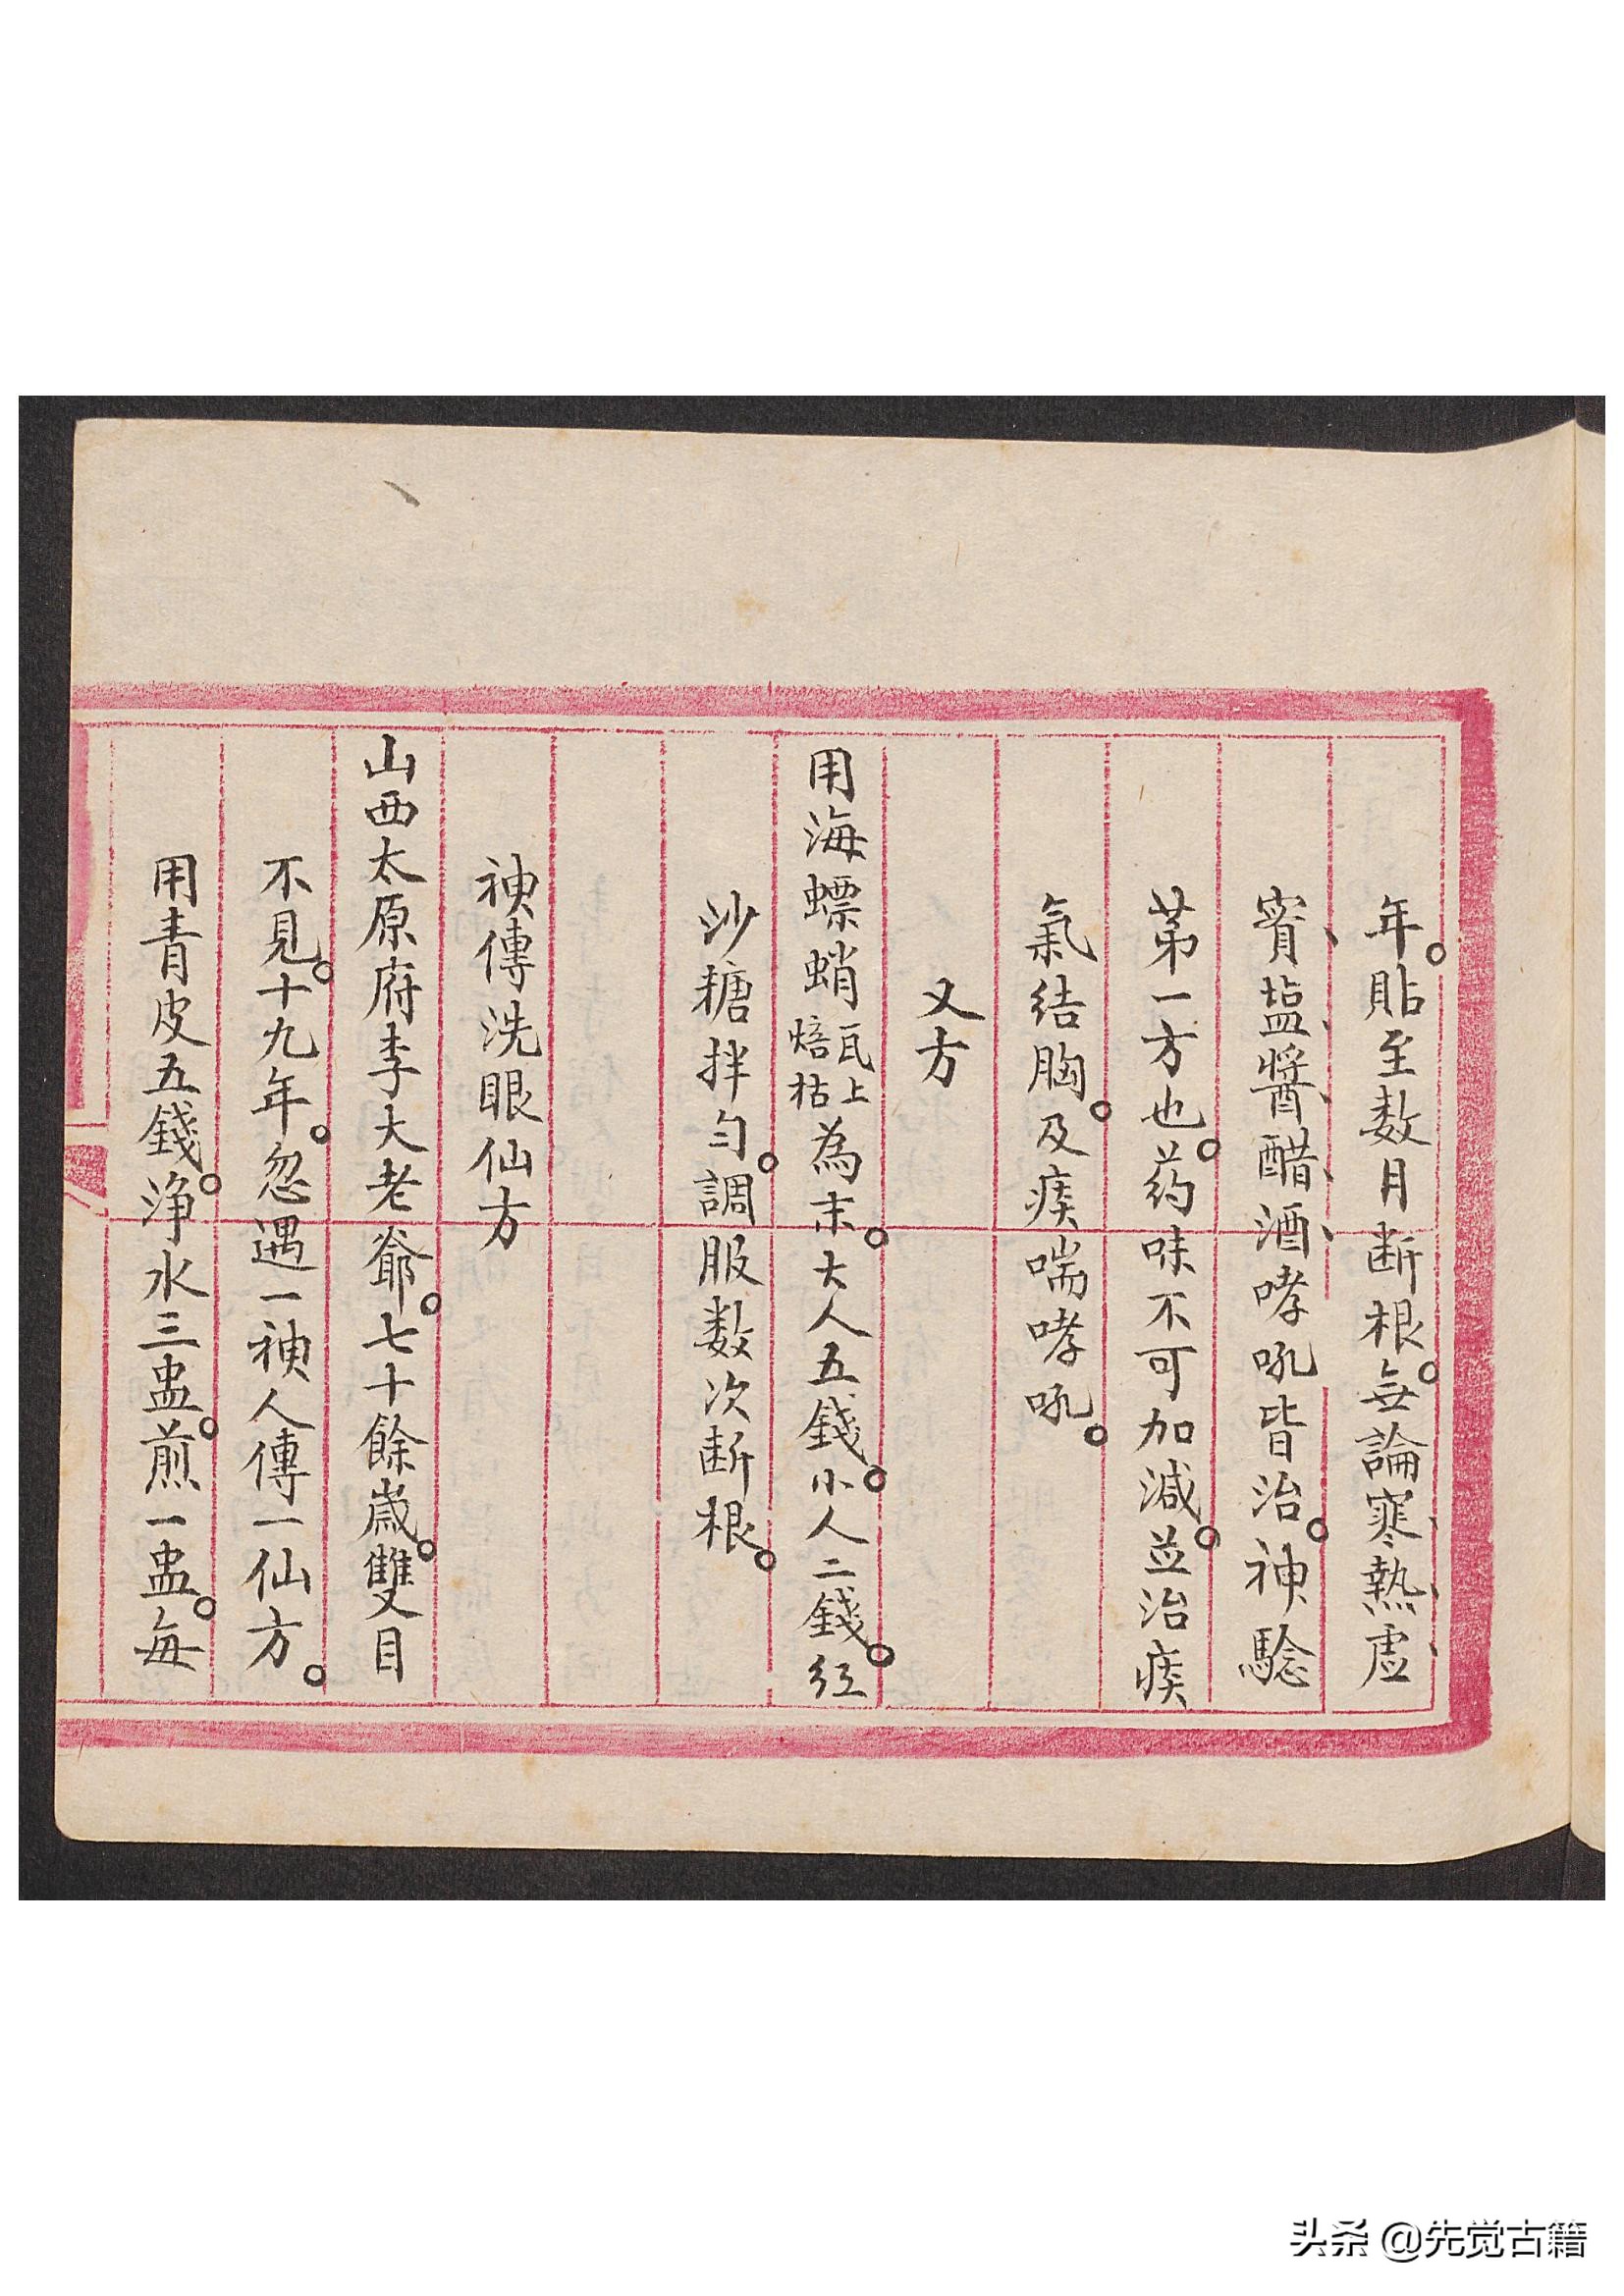 年。貼至数月断根。無論寒、熱、虛、
實、塩、醬、醋、酒、哮吼皆治。神驗
苐一方也。药味不可加減。並治痰
氣結胸。及痰喘哮吼。
又方
用海螵蛸瓦上焙枯為末。大人五錢。小人二錢。红
沙糖拌匀。調服数次断根。
神傳洗眼仙方
山西太原府李大老爺。七十餘歲。雙目
不見。十九年。忽遇一神人傳一仙方。
用青皮五錢。淨水三盅。煎一盅。每
头条 @先觉古籍